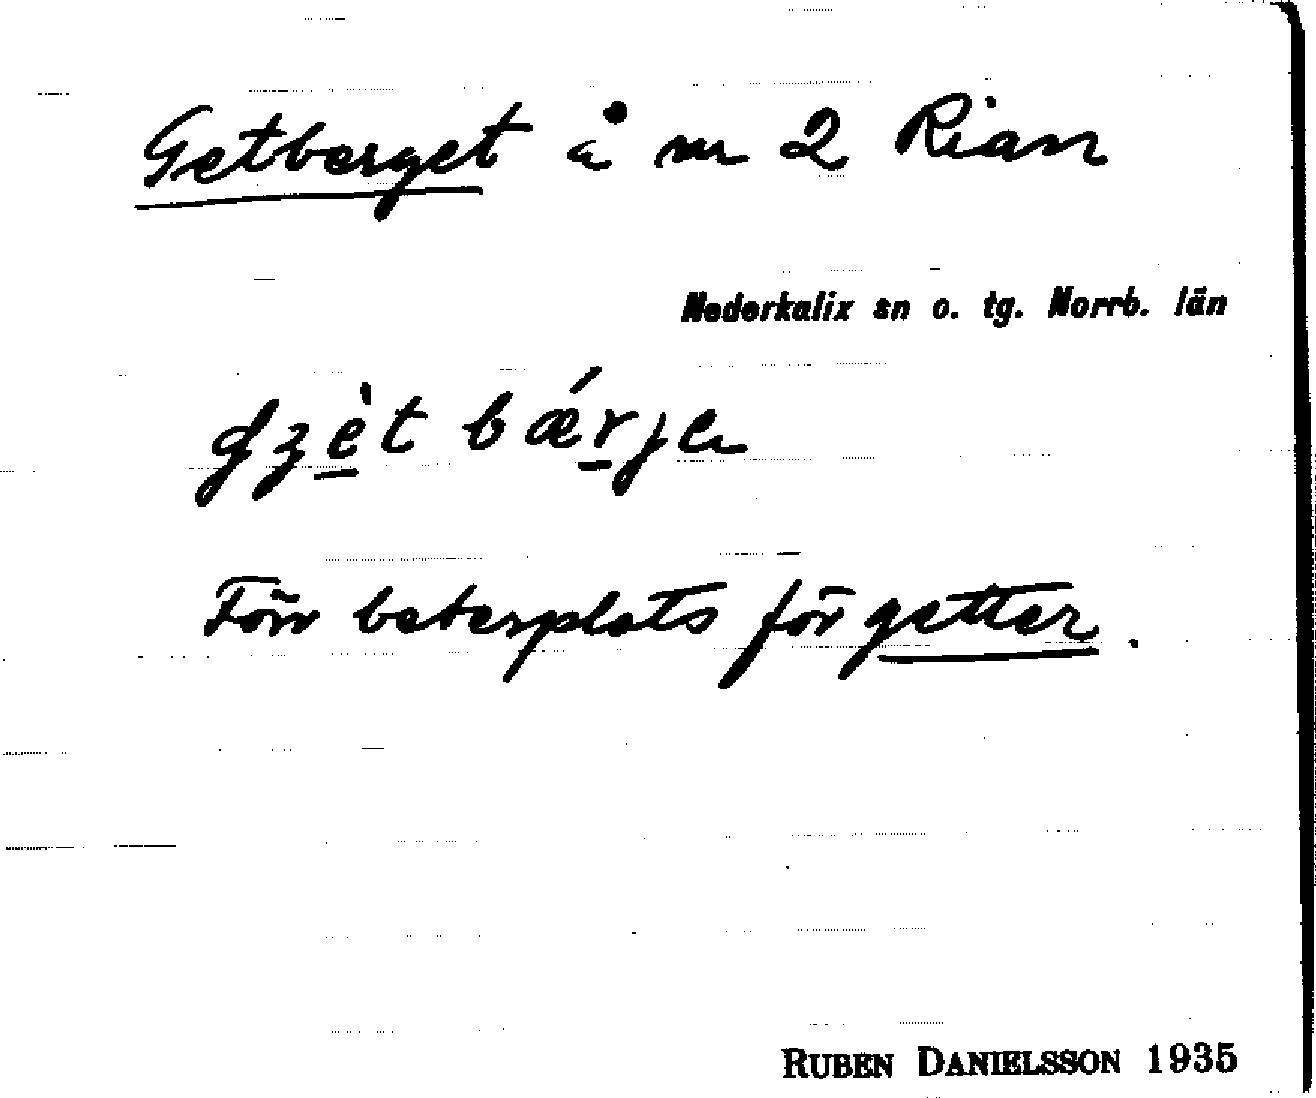 Getberget å nr 2 Rian
Nederkalix sn o. tg. Norrb. län
gʒèt bǽrje
Förr betesplats för getter.
RUBEN DANIELSSON 1935